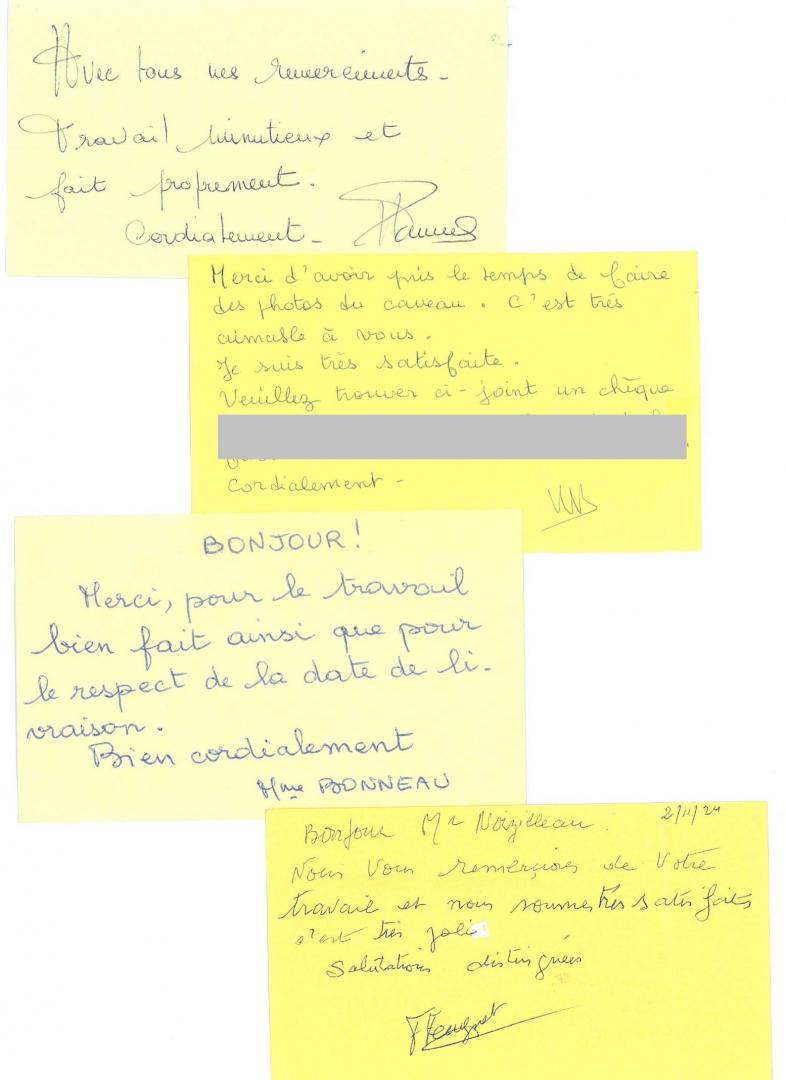 Avec tous nes remerciements.
Travail minutieux et
fait proprement.
Cordialement.
Merci d'avoir pris le temps de faire
des photos du caveau. C'est très
aimable à vous.
Je suis très satisfaite.
Veuillez trouver ci-joint un chèque
cordialement -
BONJOUR!
Merci, pour le travail
bien fait ainsi que pour
le respect de la date de li-
vraison.
Bien cordialement
Mme BONNEAU
2/11/24
Bonjour Mr Noizilleau.
Nous Vous remerçions de Votre
travail et nous sommes très satisfaits
c'est très joli
Salutations distinguées